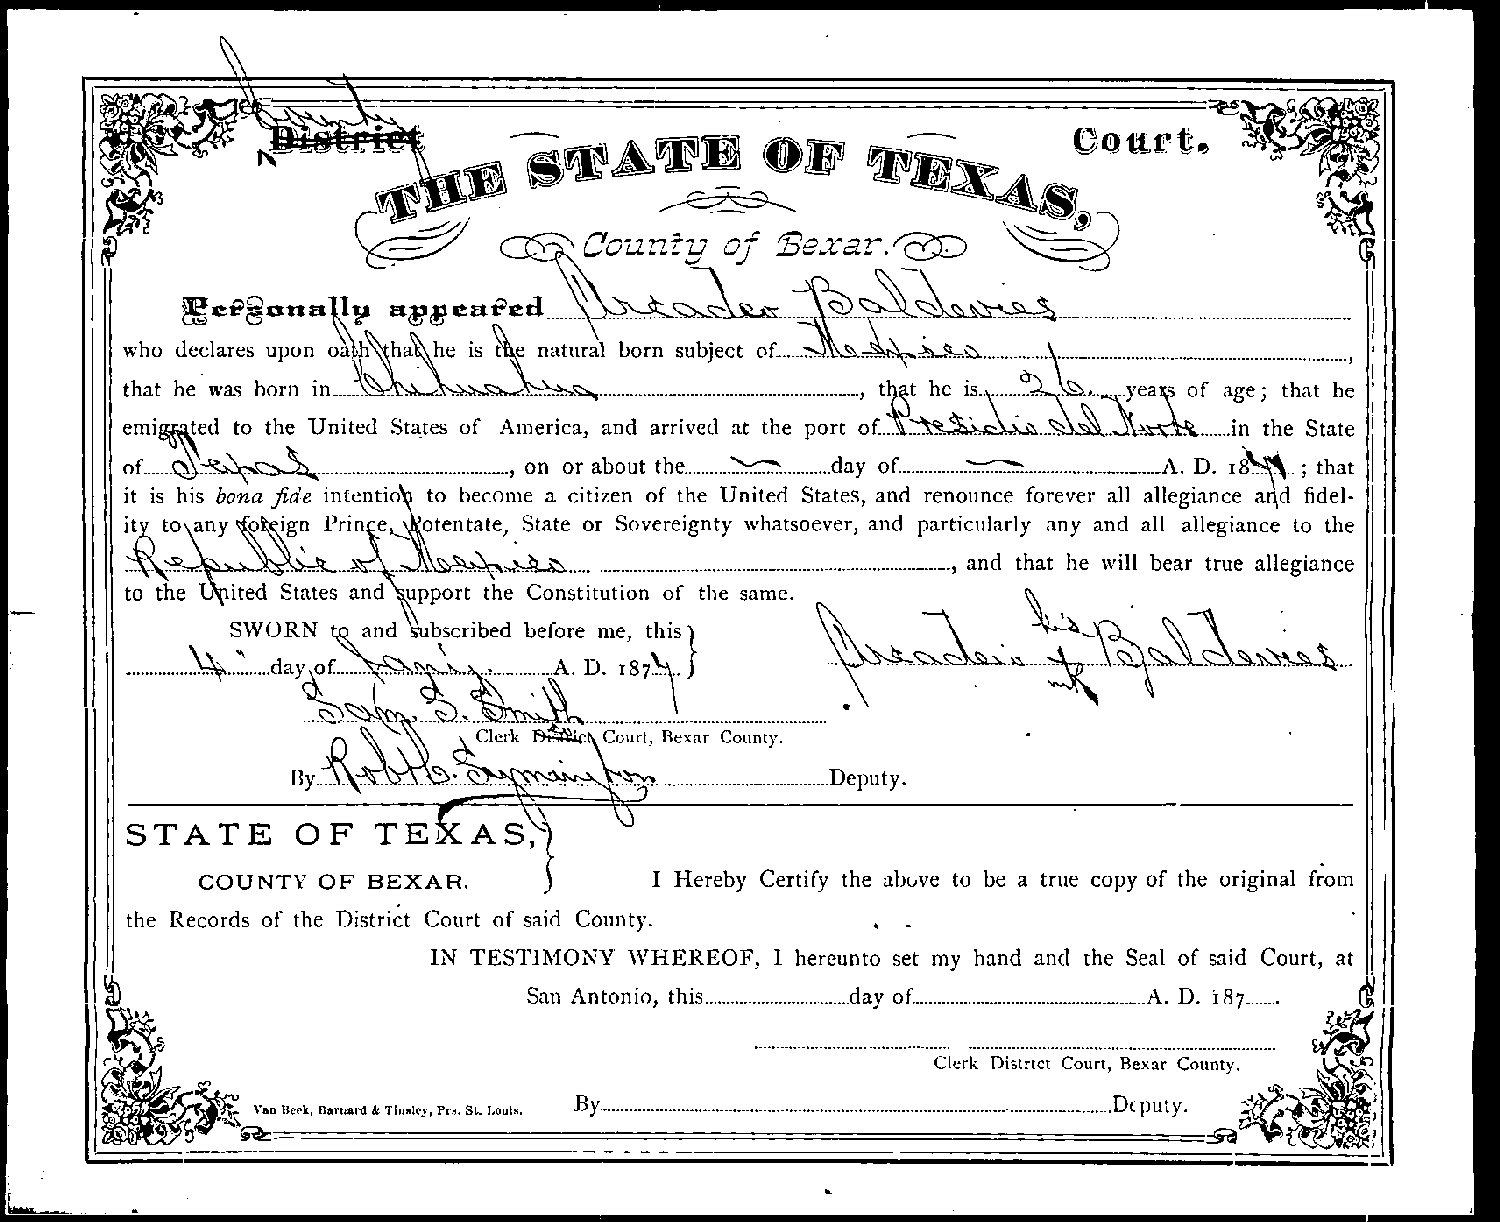 County
District Court.
THE STATE OF TEXAS,
County of Bexar.
Personally appeared Arcadeo Baldewies
who declares upon oath that he is the natural born subject of Mexico,
that he was born in Chihuahua, that he is 26 years of age; that he
emigrated to the United States of America, and arrived at the port of Presidio del Norte in the State
of Texas, on or about the — day of — A. D. 18; that
it is his bona fide intention to become a citizen of the United States, and renounce forever all allegiance and fidel-
ity to any foreign Prince, Potentate, State or Sovereignty whatsoever, and particularly any and all allegiance to the
Republic of Mexico, and that he will bear true allegiance
to the United States and support the Constitution of the same.
SWORN to and subscribed before me, this
4" day of A. D. 187
his
Arcadeio x Baldewies
mk
Sam. S. Smith
Clerk District Court, Bexar County.
By Robt C. Deputy.
STATE OF TEXAS,
COUNTY OF BEXAR.
I Hereby Certify the above to be a true copy of the original from
the Records of the District Court of said County.
IN TESTIMONY WHEREOF, I hereunto set my hand and the Seal of said Court, at
San Antonio, this day of A. D. 187 .
Clerk District Court, Bexar County.
Van Beek, Barnard & Tinsley, Prs. St. Louis.
By Deputy.